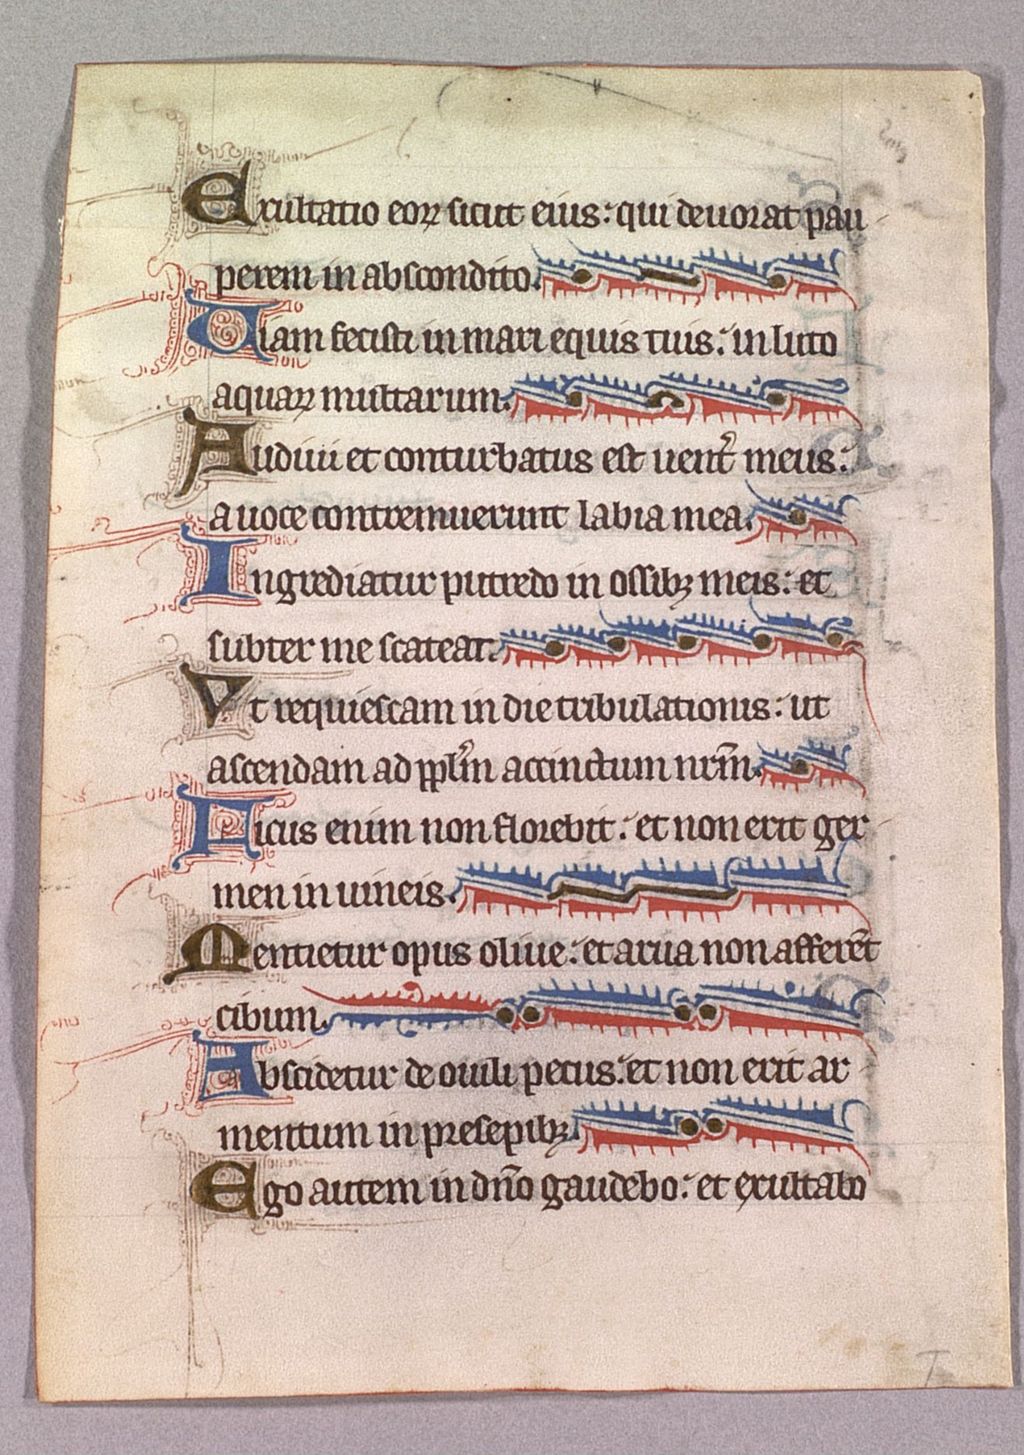 Exultatio eoꝝ sicut eius: qui deuorat pau
perem in abscondito.
Uiam fecisti in mari equis tuis: in luto
aquaꝝ multarum.
Audiui et conturbatus est uent̉ meus:
a uoce contremuerunt labia mea.
Ingrediatur putredo in ossibꝫ meis: et
subter me scateat.
Vt requiescam in die tribulationis: ut
ascendam ad ppl̉m accinctum nr̄m.
Ficus enim non florebit: et non erit ger
men in uineis.
Mentietur opus oliue: et arua non afferēt
cibum.
Abscidetur de ouili pecus: et non erit ar
mentum in presepibꝫ.
Ego autem in dn̄o gaudebo: et exultabo